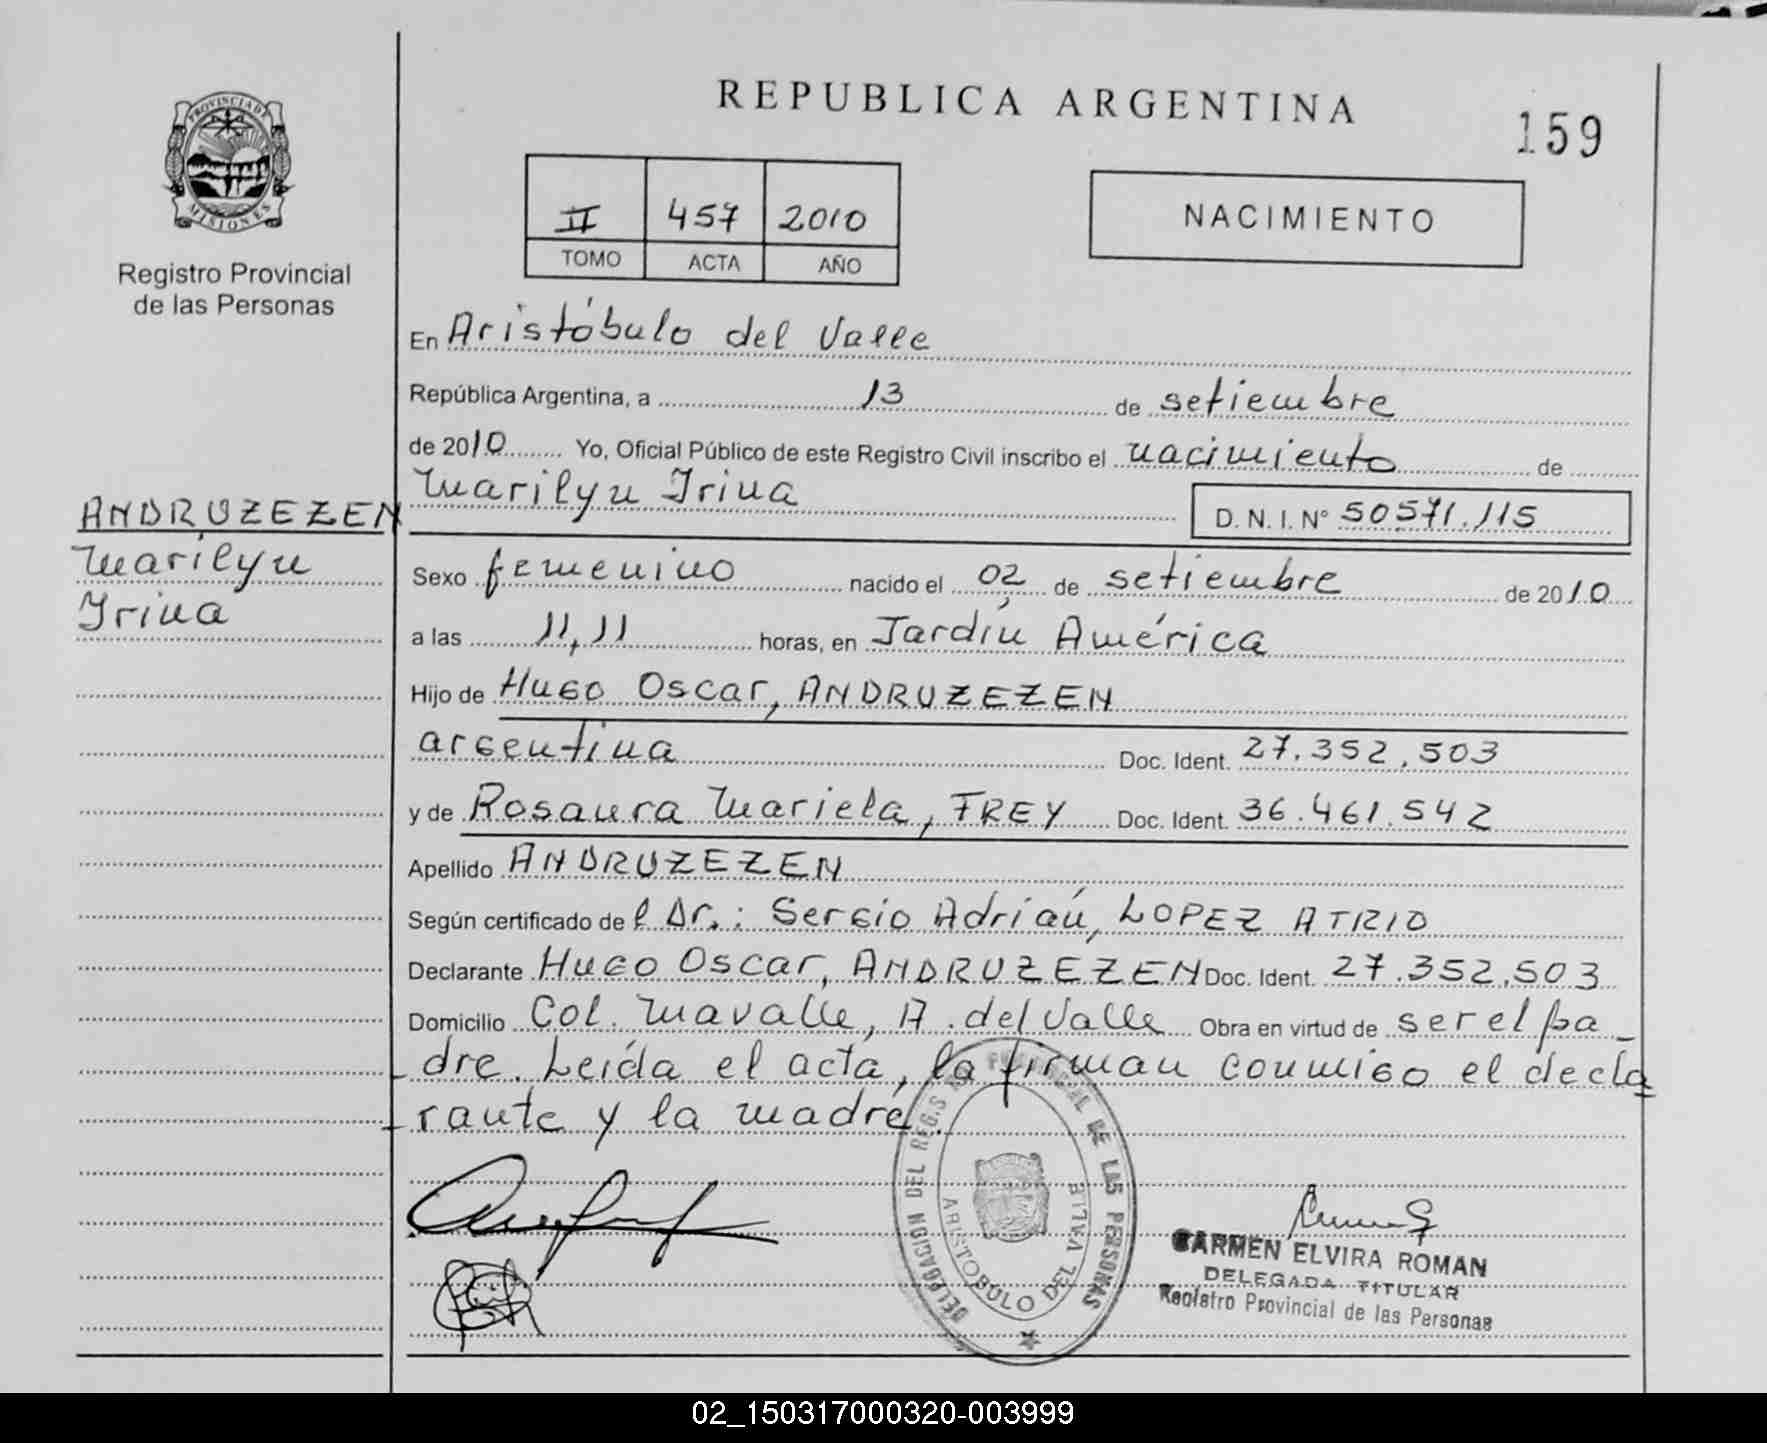 REPUBLICA ARGENTINA
159
PROVINCIA DE
MISIONES
Registro Provincial
de las Personas
II 457 2010
TOMO ACTA AÑO
NACIMIENTO
En Aristóbulo del Valle
República Argentina, a 13 de setiembre
de 2010 Yo, Oficial Público de este Registro Civil inscribo el nacimiento de
Marilyn Irina
D. N. I. N° 50571.115
ANDRUZEZEN
Marilyn
Irina
Sexo femenino nacido el 02 de setiembre de 2010
a las 11,11 horas, en Jardín América
Hijo de Hugo Oscar, ANDRUZEZEN
argentina Doc. Ident. 27.352.503
y de Rosaura Mariela, FREY Doc. Ident. 36.461.542
Apellido ANDRUZEZEN
Según certificado del Dr.: Sergio Adrián, LOPEZ ATRIO
Declarante Hugo Oscar, ANDRUZEZEN Doc. Ident. 27.352.503
Domicilio Col. Mavalle, A. del Valle Obra en virtud de ser el pa_
_dre. Leída el acta, la firman conmigo el decla_
_rante y la madre.
DELEGACION DEL REG. PROVINCIAL DE LAS PERSONAS
ARISTOBULO DEL VALLE
CARMEN ELVIRA ROMAN
DELEGADA TITULAR
Registro Provincial de las Personas
02_150317000320-003999